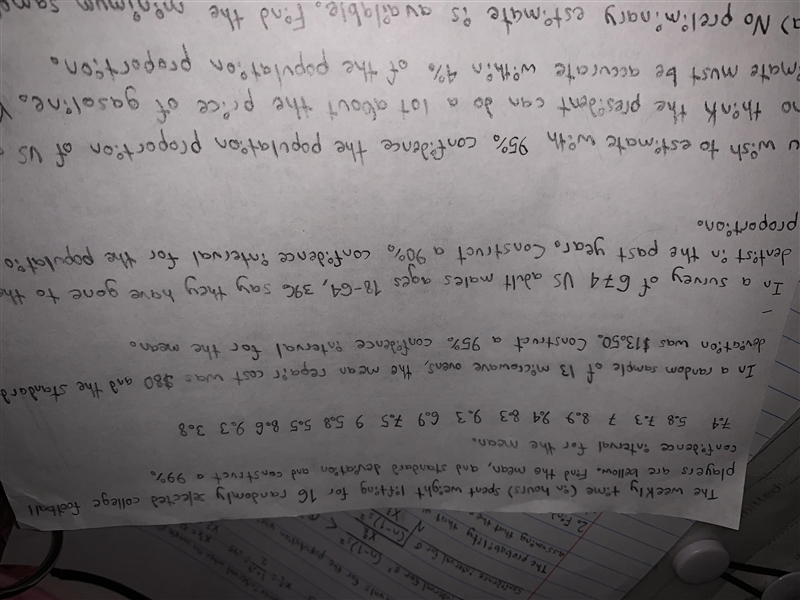 The probability that
assuming that the
The weekly time (in hours) spent weight lifting for 16 randomly selected college football
players are bellow. Find the mean, and standard deviation and construct a 99%
confidence interval for the mean.
7.4 5.8 7.3 7 8.9 9.4 8.3 9.3 6.9 7.5 9 5.8 5.5 8.6 9.3 3.8
In a random sample of 13 microwave ovens, the mean repair cost was $80 and the standard
deviation was $13.50. Construct a 95% confidence interval for the mean.
In a survey of 674 US adult males ages 18-64, 396 say they have gone to the
dentist in the past year. Construct a 90% confidence interval for the populatio
proportion.
u wish to estimate with 95% confidence the population proportion of US
no think the president can do a lot about the price of gasoline.
imate must be accurate within 4% of the population proportion.
a) No preliminary estimate is available. Find the minimum samp